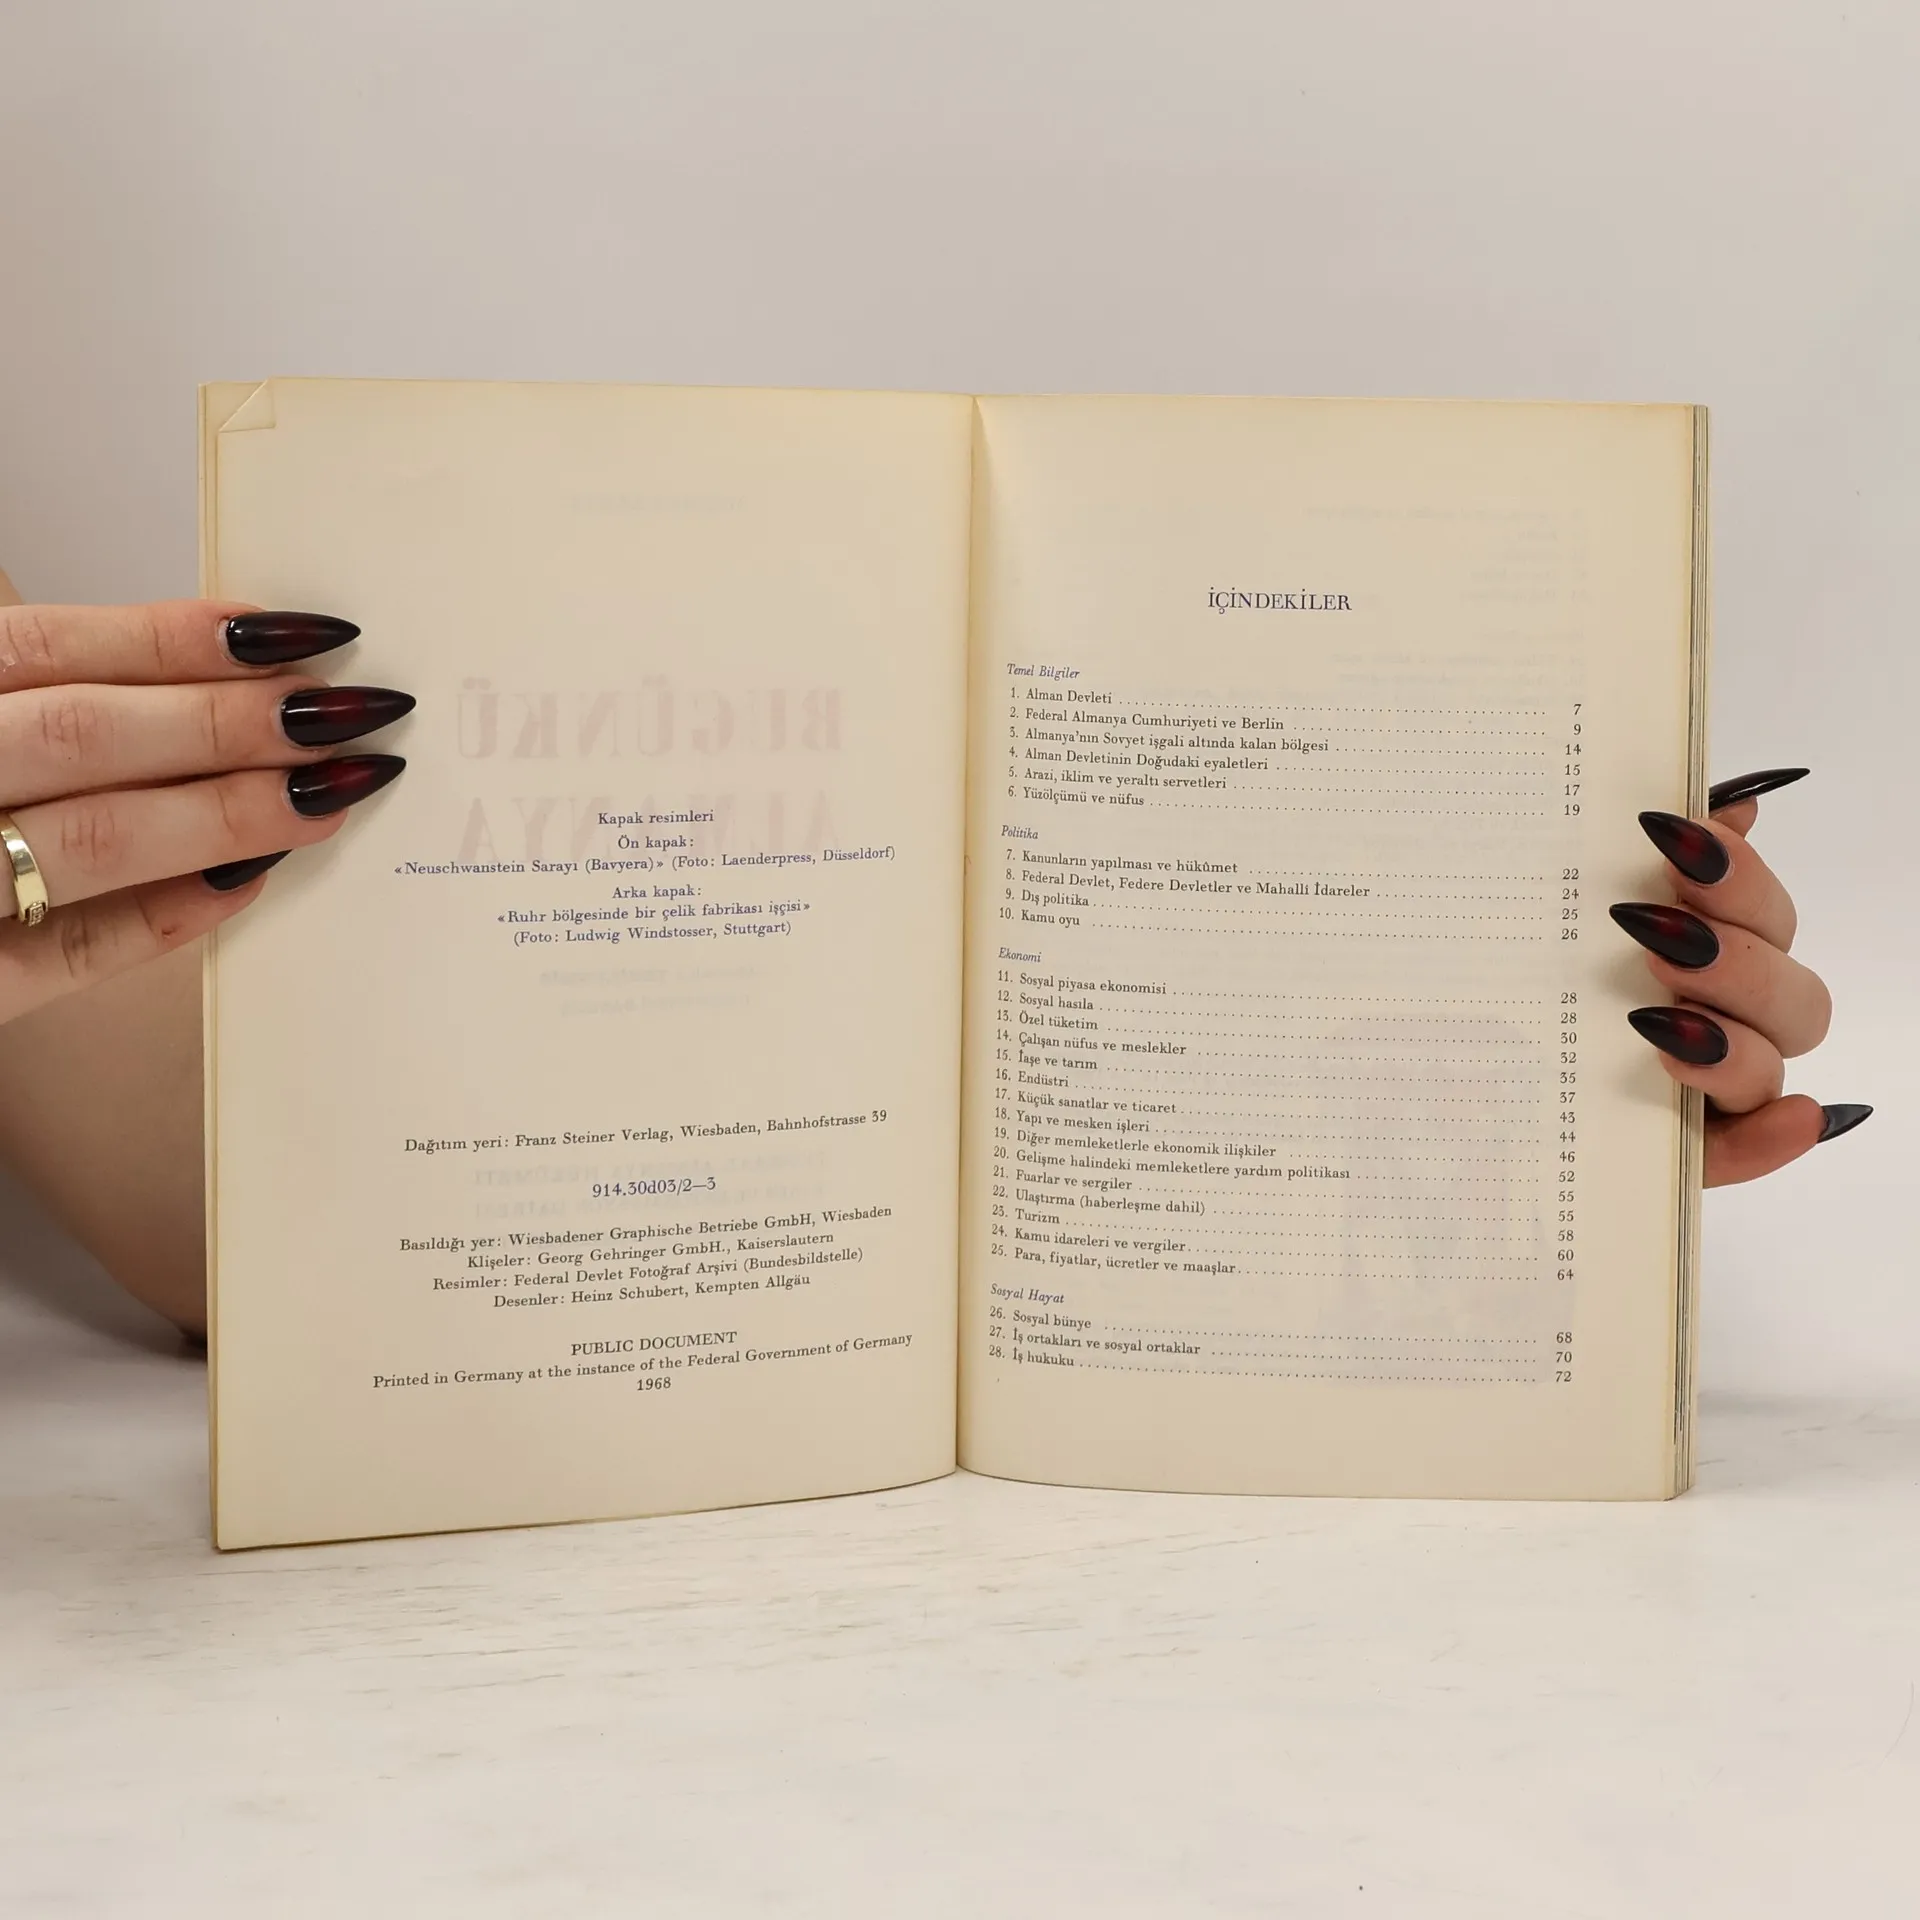 Kapak resimleri
Ön kapak:
«Neuschwanstein Sarayı (Bavyera)» (Foto: Laenderpress, Düsseldorf)
Arka kapak:
«Ruhr bölgesinde bir çelik fabrikası işçisi»
(Foto: Ludwig Windstosser, Stuttgart)
Dağıtım yeri: Franz Steiner Verlag, Wiesbaden, Bahnhofstrasse 39
914.30d03/2—3
Basıldığı yer: Wiesbadener Graphische Betriebe GmbH, Wiesbaden
Klişeler: Georg Gehringer GmbH., Kaiserslautern
Resimler: Federal Devlet Fotoğraf Arşivi (Bundesbildstelle)
Desenler: Heinz Schubert, Kempten Allgäu
PUBLIC DOCUMENT
Printed in Germany at the instance of the Federal Government of Germany
1968
İÇİNDEKİLER
Temel Bilgiler
1. Alman Devleti 7
2. Federal Almanya Cumhuriyeti ve Berlin 9
3. Almanya'nın Sovyet işgali altında kalan bölgesi 14
4. Alman Devletinin Doğudaki eyaletleri 15
5. Arazi, iklim ve yeraltı servetleri 17
6. Yüzölçümü ve nüfus 19
Politika
7. Kanunların yapılması ve hükûmet 22
8. Federal Devlet, Federe Devletler ve Mahallî İdareler 24
9. Dış politika 25
10. Kamu oyu 26
Ekonomi
11. Sosyal piyasa ekonomisi 28
12. Sosyal hasıla 28
13. Özel tüketim 30
14. Çalışan nüfus ve meslekler 32
15. İaşe ve tarım 35
16. Endüstri 37
17. Küçük sanatlar ve ticaret 43
18. Yapı ve mesken işleri 44
19. Diğer memleketlerle ekonomik ilişkiler 46
20. Gelişme halindeki memleketlere yardım politikası 52
21. Fuarlar ve sergiler 55
22. Ulaştırma (haberleşme dahil) 55
23. Turizm 58
24. Kamu idareleri ve vergiler 60
25. Para, fiyatlar, ücretler ve maaşlar 64
Sosyal Hayat
26. Sosyal bünye 68
27. İş ortakları ve sosyal ortaklar 70
28. İş hukuku 72